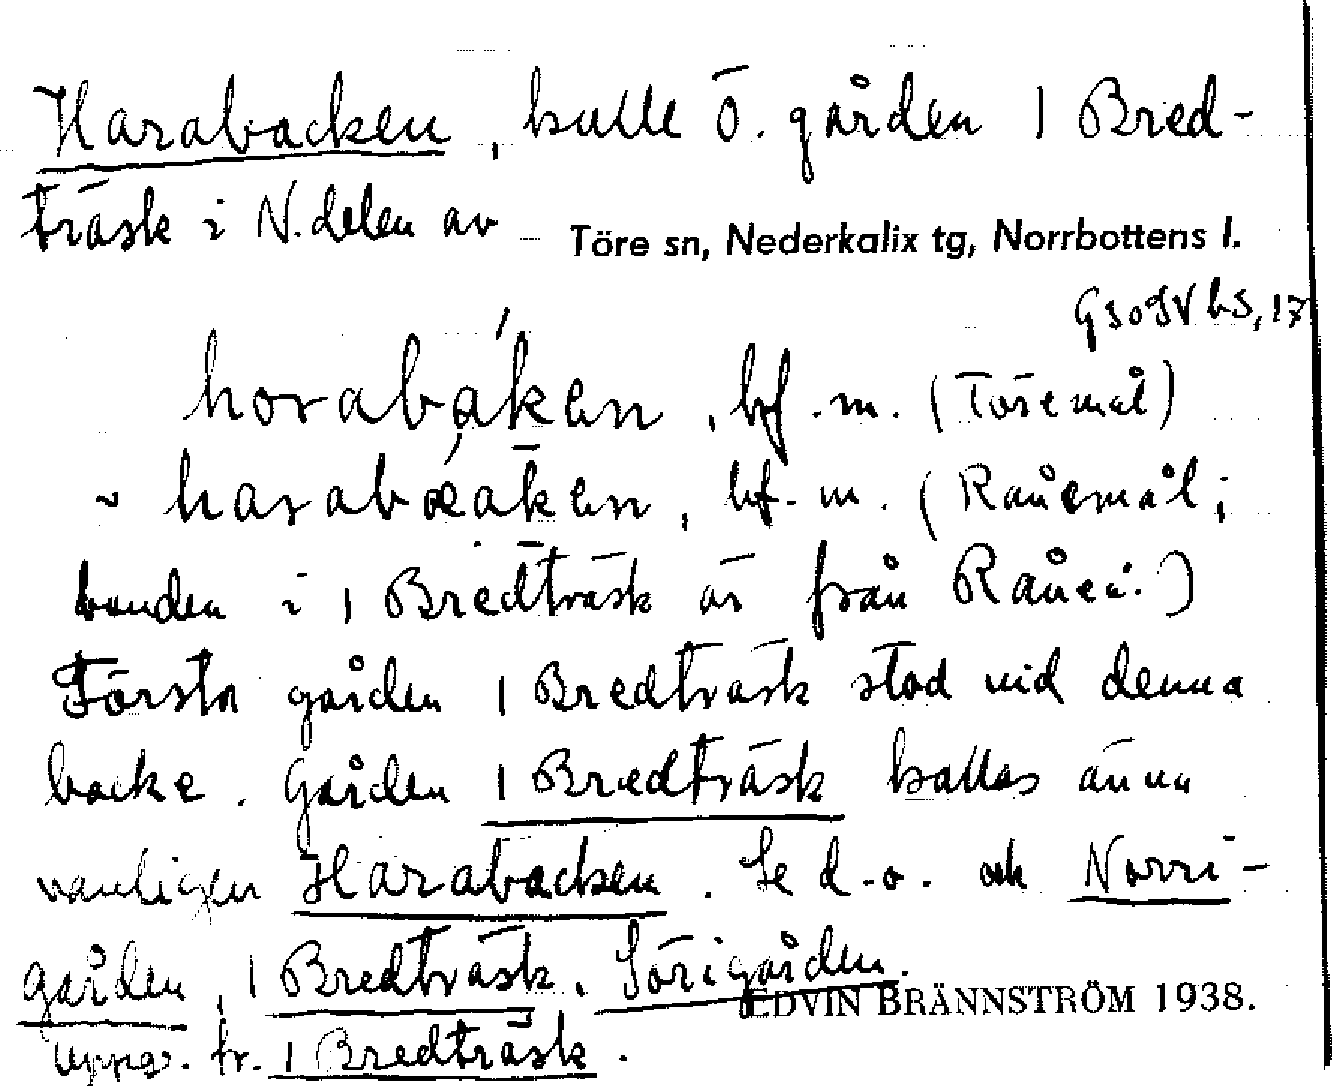 Harabacken, kulle Ö. gården 1 Bred-
träsk i N. delen av
Töre sn, Nederkalix tg, Norrbottens l.
bs, 17
horabáken, bf. m. (Töremål)
~ harabæaken, bf. m. (Rånemål;
bonden i 1 Bredträsk är från Råneå.)
Första gården 1 Bredträsk stod vid denna
backe. Gården 1 Bredträsk kallas ännu
vanligen Harabacken. Se d. o. och Norri-
gården, 1 Bredträsk, Sörigården.
EDVIN BRÄNNSTRÖM 1938.
Uppg. fr. 1 Bredträsk.